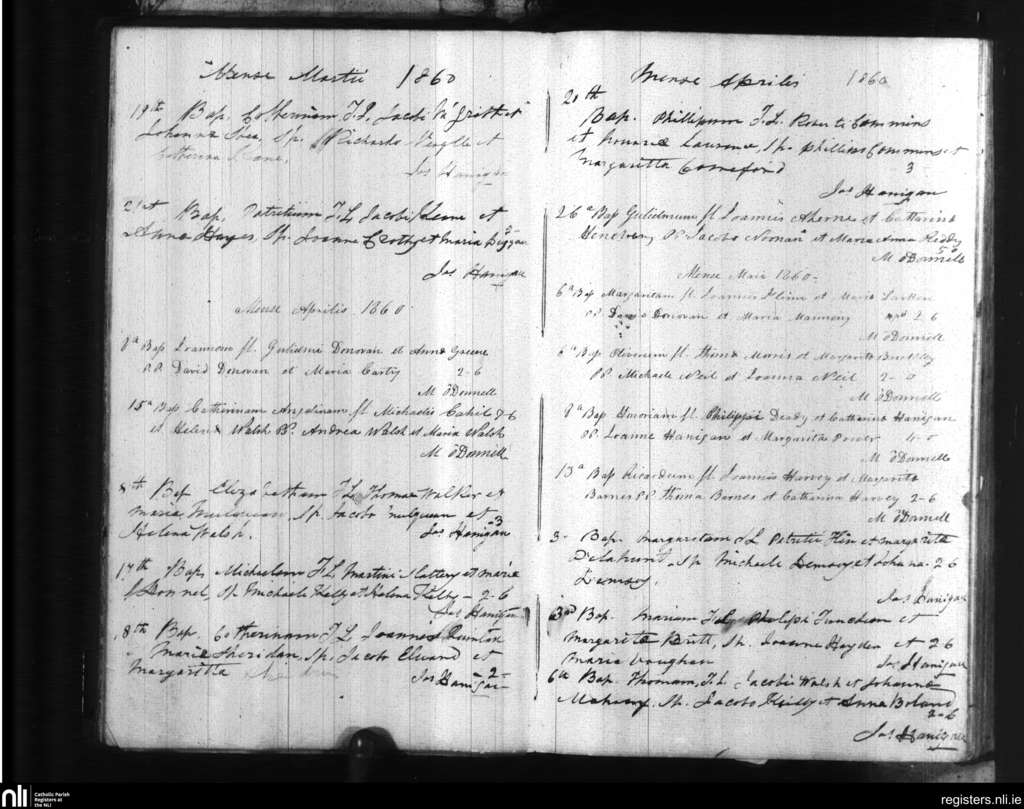 Mense Martii 1860
19th Bap. Catherinam F.L. Jacobi
Johanna Shea, Sp. Richardo et
Catherina
Jas Hanigan
21st Bap. Patritium F.L. Jacobi Keane et
Anna Hayes, Sp. Joanne et Maria Diggan
Jas Hanigan
Mense Aprilis 1860
8a Bap Joannem fl. Gulielmi Donovan et Anna Greene
PP. David Donovan et Maria Carty 2-6
M O'Donnell
15a Bap Catherinam Angelinam fl. Michaelis Cahil &6
et Helena Walsh PP. Andrea Walsh et Maria Walsh
M O'Donnell
8th Bap Elizabetham F.L. Thomae Walker et
Maria Mulquean, Sp. Jacobo Mulquean et
Helena Walsh. 3
Jas Hanigan
17th Bap. Michaelem F.L. Martini Slattery et Maria
Sp. Michaele Kelly et Helena Kelly - 2-6
Jas Hanigan
18th Bap. Catherinam F.L. Joannis Quinlan
Maria Sheridan, Sp. Jacobo Elward et
Margaritta 2-
Jas Hanigan
Mense Aprilis 1860
20th
Bap. Phillipum F.L. Robert Commins
et Honora Laurence, Sp. Phillip Commins et
Margaritta Comeford 3
Jas Hanigan
26a Bap Gulielmum fl. Joannis Aherne et Catharina
PP. Jacobo Noonan et Maria Anna Reddy
5-0
M O'Donnell
Mense Maii 1860-
6a Bap Margaritam fl. Joannis Flinn et Maria Larken
PP. Donovan et Maria Mannony 2-6
M O'Donnell
6a Bap Oliverum fl. Thoma Morris et Margarita Buckley
PP. Michaele Neil et Joanna Neil 2-0
M O'Donnell
9a Bap Honoriam fl. Philippi Deady et Catharina Hanigan
PP. Joanne Hanigan et Margarita Power 4-0
M O'Donnell
13a Bap Ricardum fl. Joannis Harvey et Margarita
Barnes PP. Thoma Barnes et Catharina Harvey 2-6
M O'Donnell
3- Bap. Margaretam F.L. Patritii Flin et Margaritta
Delahunt, Sp. Michaele Demsey et Johana 2-6
Demsey.
Jas Hanigan
3rd Bap. Mariam F.L. Philipi Truncheon et
Margaritta Britt, Sp. Joanne Hayden et 2 6
Maria Vaughan
Jas Hanigan
6th Bap. Thomam, F.L. Jacobi Walsh et Johanna
Mahony. Sp. Jacobo Kielly et Anna Boland
2-6
Jas Hanigan
nli
Catholic Parish
Registers at
the NLI
registers.nli.ie